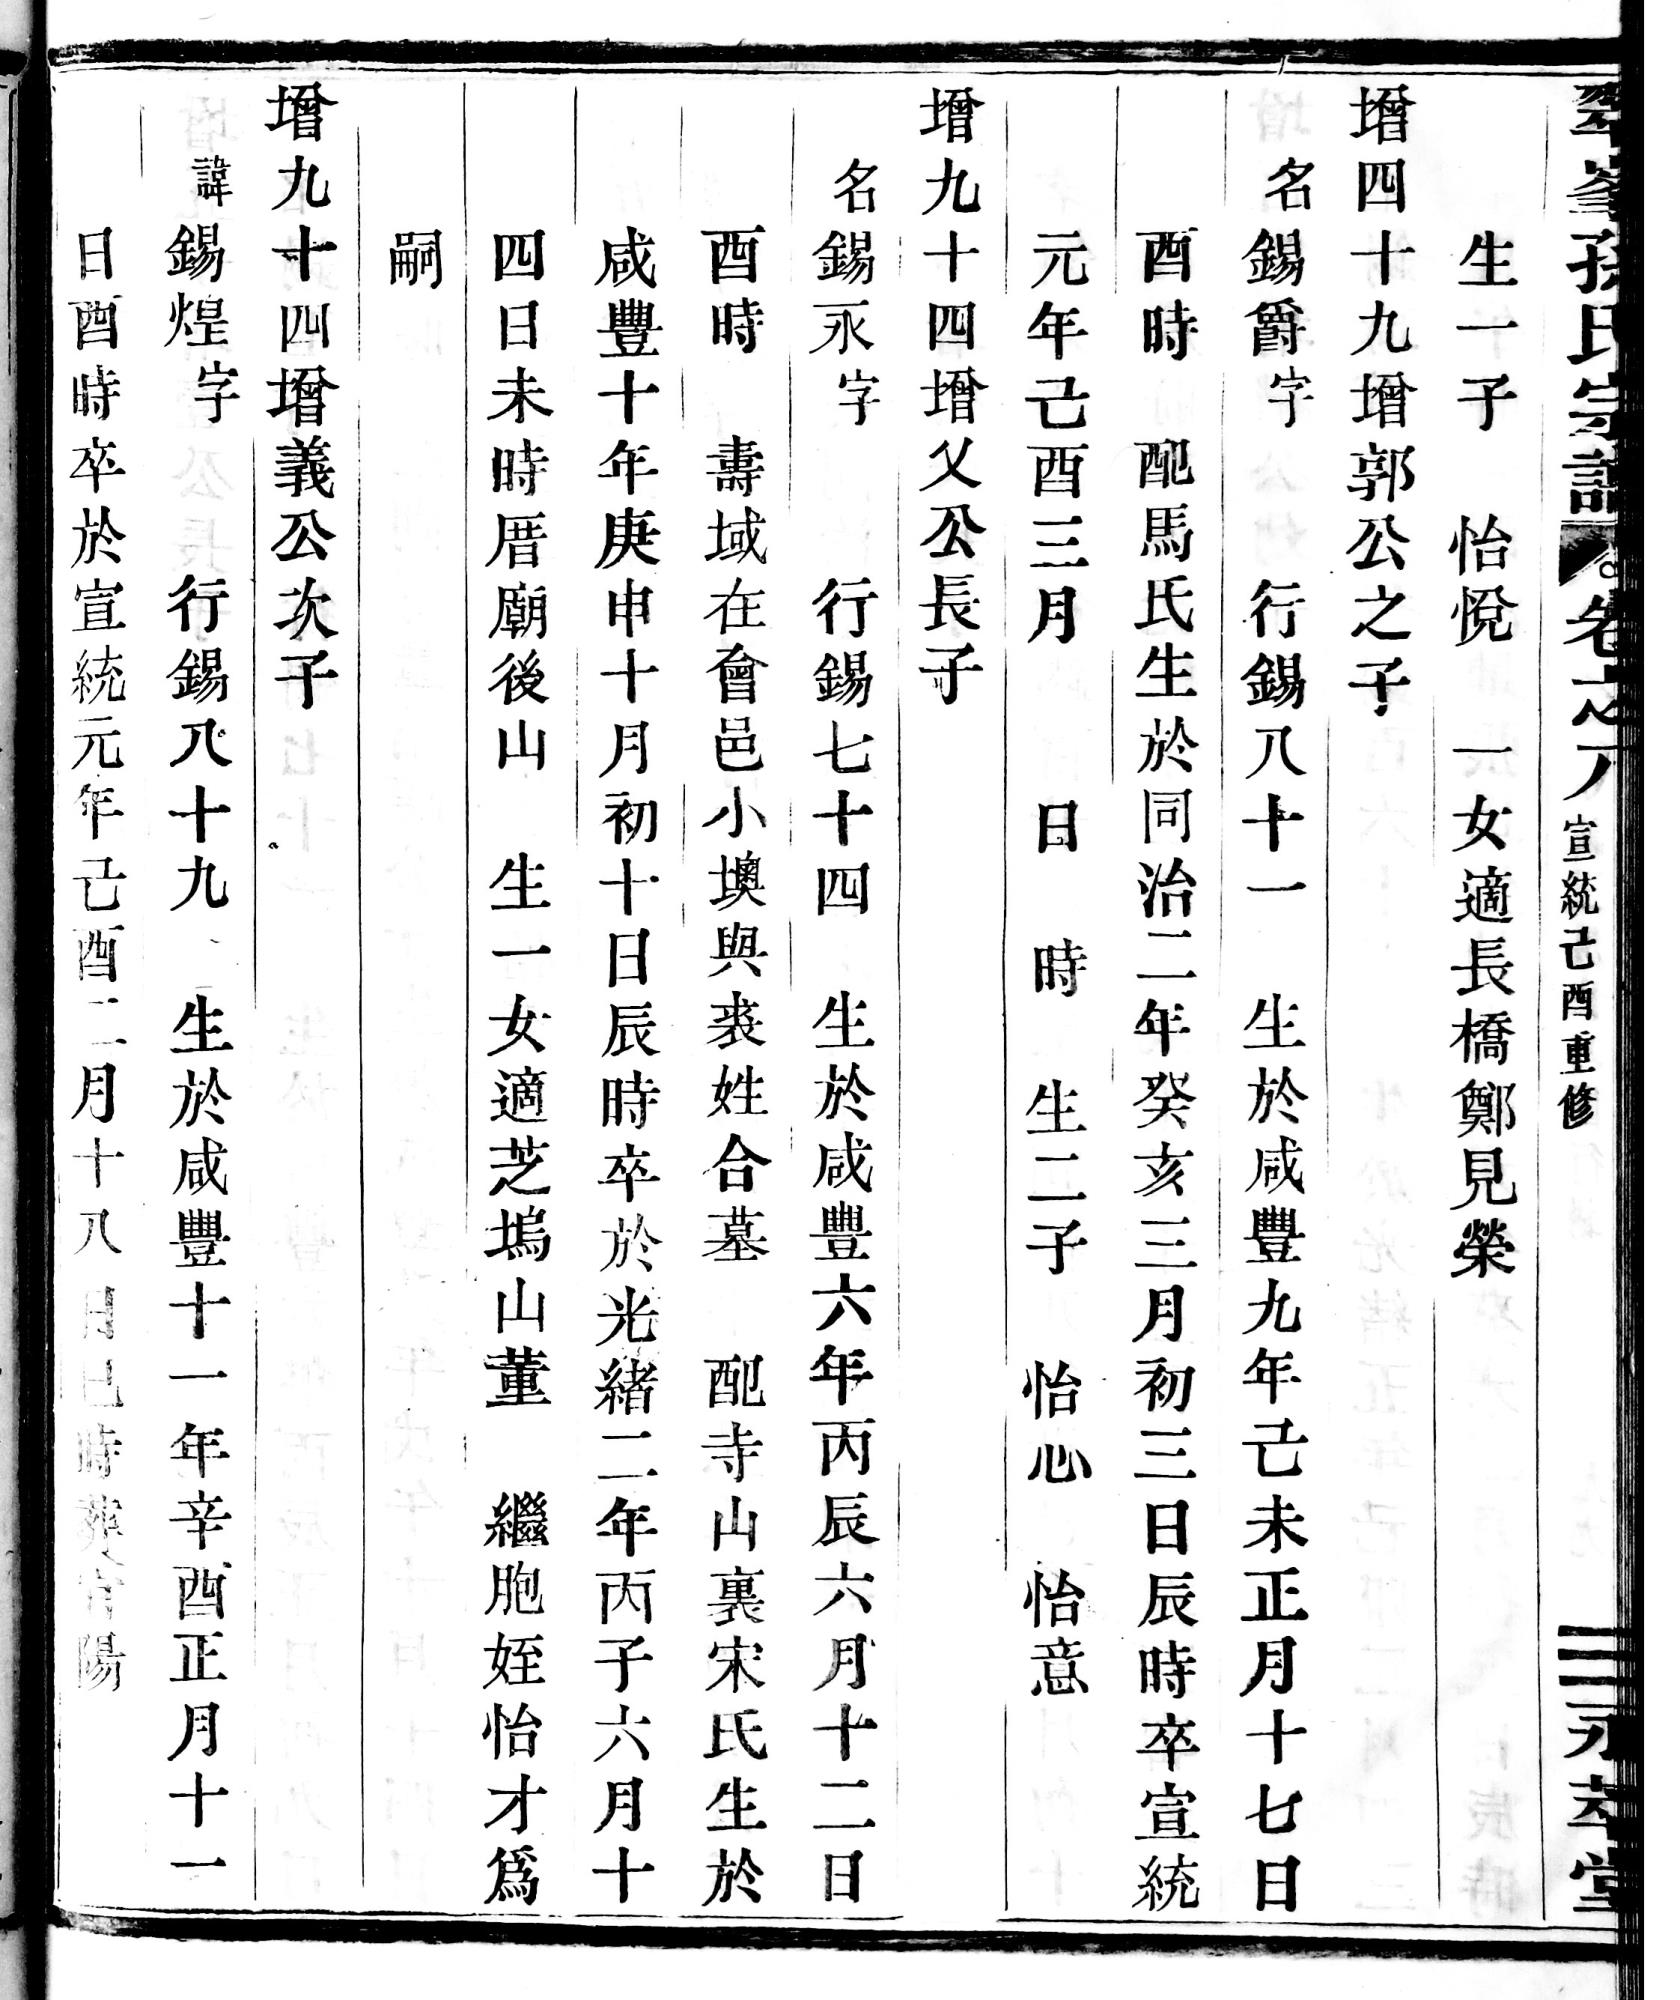 孫氏宗譜 卷之八 宣統己酉重修 永萃堂
生一子 怡悅 一女適長橋鄭見榮
增四十九增郭公之子
名錫爵字 行錫八十一 生於咸豐九年己未正月十七日
酉時 配馬氏生於同治二年癸亥三月初三日辰時卒宣統
元年己酉三月 日 時 生二子 怡心 怡意
增九十四增父公長子
名錫永字 行錫七十四 生於咸豐六年丙辰六月十二日
酉時 壽域在會邑小墺與裘姓合墓 配寺山裏宋氏生於
咸豐十年庚申十月初十日辰時卒於光緒二年丙子六月十
四日未時厝廟後山 生一女適芝塢山董 繼胞姪怡才爲
嗣
增九十四增義公次子
諱錫煌字 行錫八十九 生於咸豐十一年辛酉正月十一
日酉時卒於宣統元年己酉二月十八日巳時葬 陽